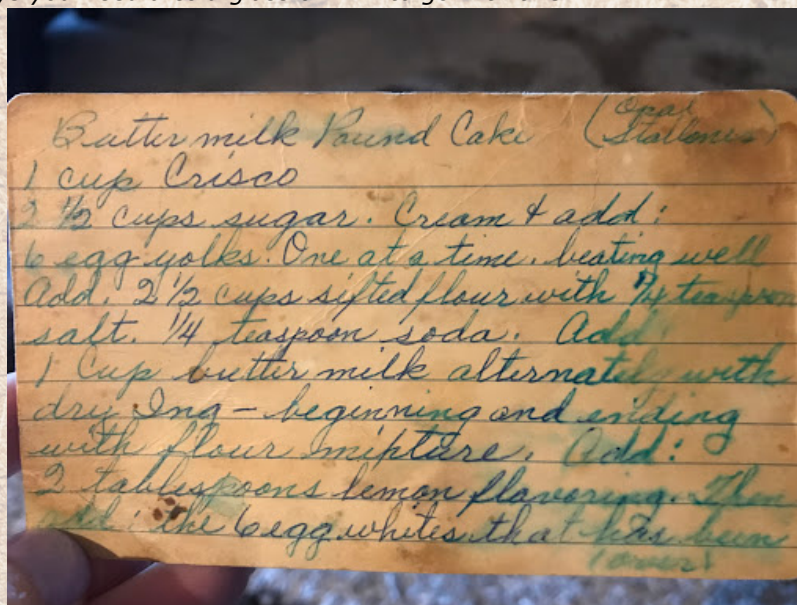 Buttermilk Pound Cake (Opal
Stallones)
1 cup Crisco
2 1/2 cups sugar. Cream & add:
6 egg yolks. One at a time. beating well
Add. 2 1/2 cups sifted flour with 1/4 teaspoon
salt. 1/4 teaspoon soda. Add
1 Cup butter milk alternately with
dry Ing - beginning and ending
with flour mixture. Add:
2 tablespoons lemon flavoring. Then
add: the 6 egg whites that has been
(over)